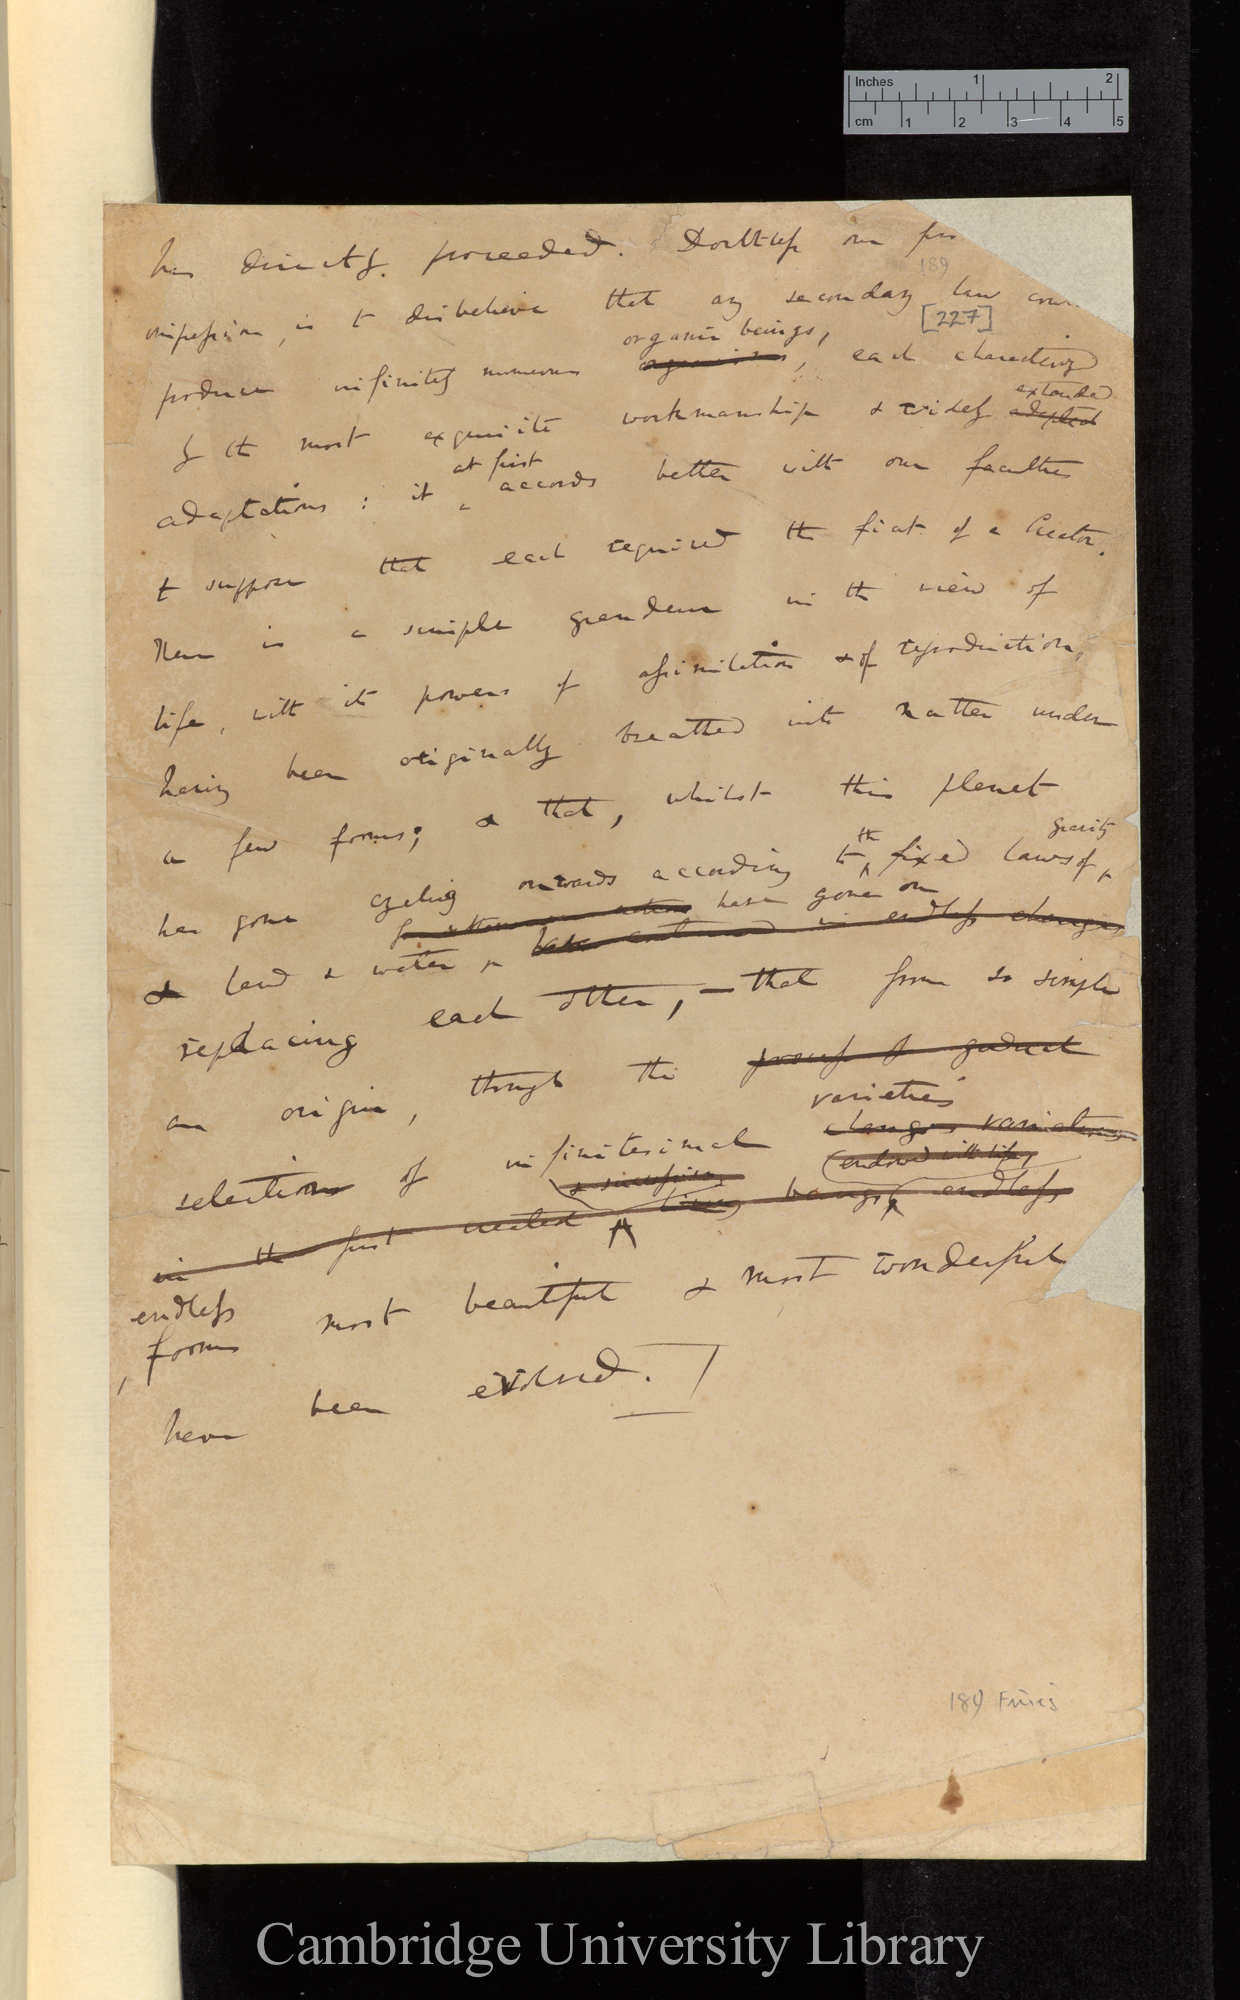 Inches 1 2
cm 1 2 3 4 5
has directly proceeded. Doubtless our
189
impression, is to disbelieve that any secondary law
[227]
organic beings,
produce infinitely numerous organisms, each characterized
extended
by the most exquisite workmanship & widely adapted
at first
adaptations: it accords better with our faculties
to suppose that each required the fiat of a Creator.
There is a simple grandeur in the view of
life, with its powers of assimilation & of reproduction,
having been originally breathed into matter under
a few forms; & that, whilst this planet
the gravity
has gone cycling onwards according to fixed laws of
have gone on
& land & water in endless changes
replacing each other, — that from so simple
an origin, through the process of gradual
varieties
selection of infinitesimal changes variations
& succession (endowed with life)
in the first created beings, endless
endless
forms most beautiful & most wonderful
have been evolved.
189 Finis
Cambridge University Library